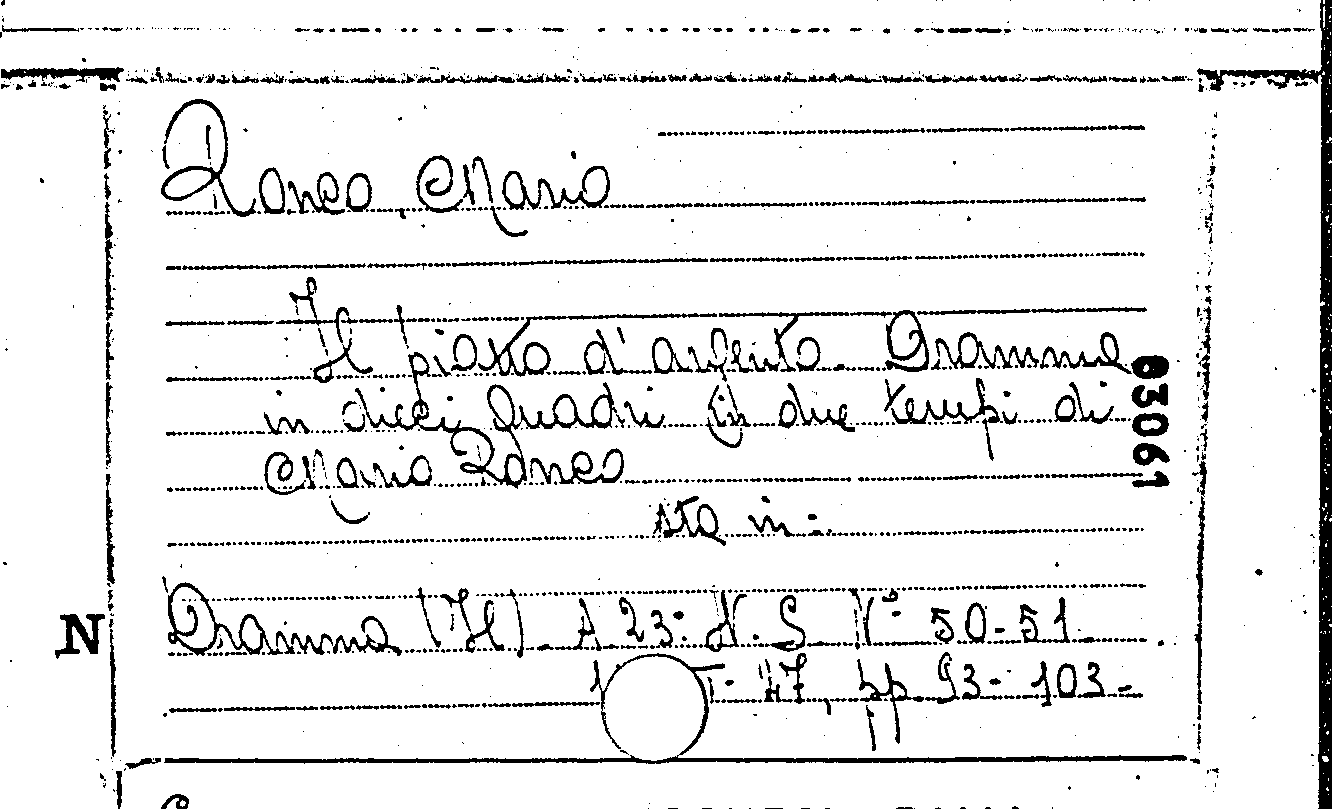 Ronco, Mario
Il piatto d'argento. Dramma
in dieci quadri in due tempi di
Mario Ronco
sta in:
Dramma (Il). A. 23: N. S. N° 50-51.
47, pp. 93-103.
N
63061